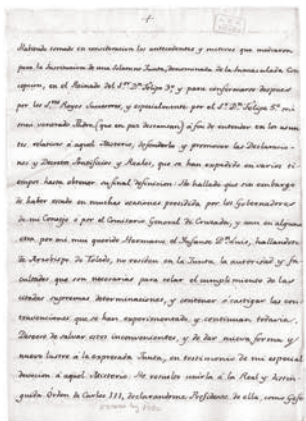 -1-
Habiendo tomado en consideracion los antecedentes y motivos que mediaron
para la Institucion de una Solemne Junta, denominada de la Inmaculada Con-
cepcion, en el Reinado del S.or D.n Felipe 3.º y para conformarse despues
por los S.res Reyes Sucesores, y especialmente por el S.or D.n Felipe 5.º mi
mas venerado Padre, (que en paz descansan) á fin de entender en los asun-
tos, relativos á aquel Misterio, defenderle y promover las Declaracio-
nes y Decretos Pontificios y Reales, que se han expedido en varios ti-
empos hasta obtener su final definicion: He hallado que sin embargo
de haber estado en muchas ocasiones presidida por los Gobernadores
de mi Consejo ó por el Comisario General de Cruzada, y aun en alguna
otra, por mi muy querido Hermano el Infante D.n Luis, hallandose
de Arzobispo de Toledo, no residen en la Junta, la autoridad y fa-
cultades que son necesarias para celar el cumplimiento de las
citadas supremas determinaciones, y contener ó castigar las con-
travenciones que se han experimentado, y continuan todavia.
Deseoso de salvar estos inconvenientes, y de dar nueva forma y
nuevo lustre á la expresada Junta, en testimonio de mi especial
devocion á aquel Misterio: He resuelto unirla á la Real y distin-
guida Órden de Carlos III, declarandome Presidente de ella, como Gefe